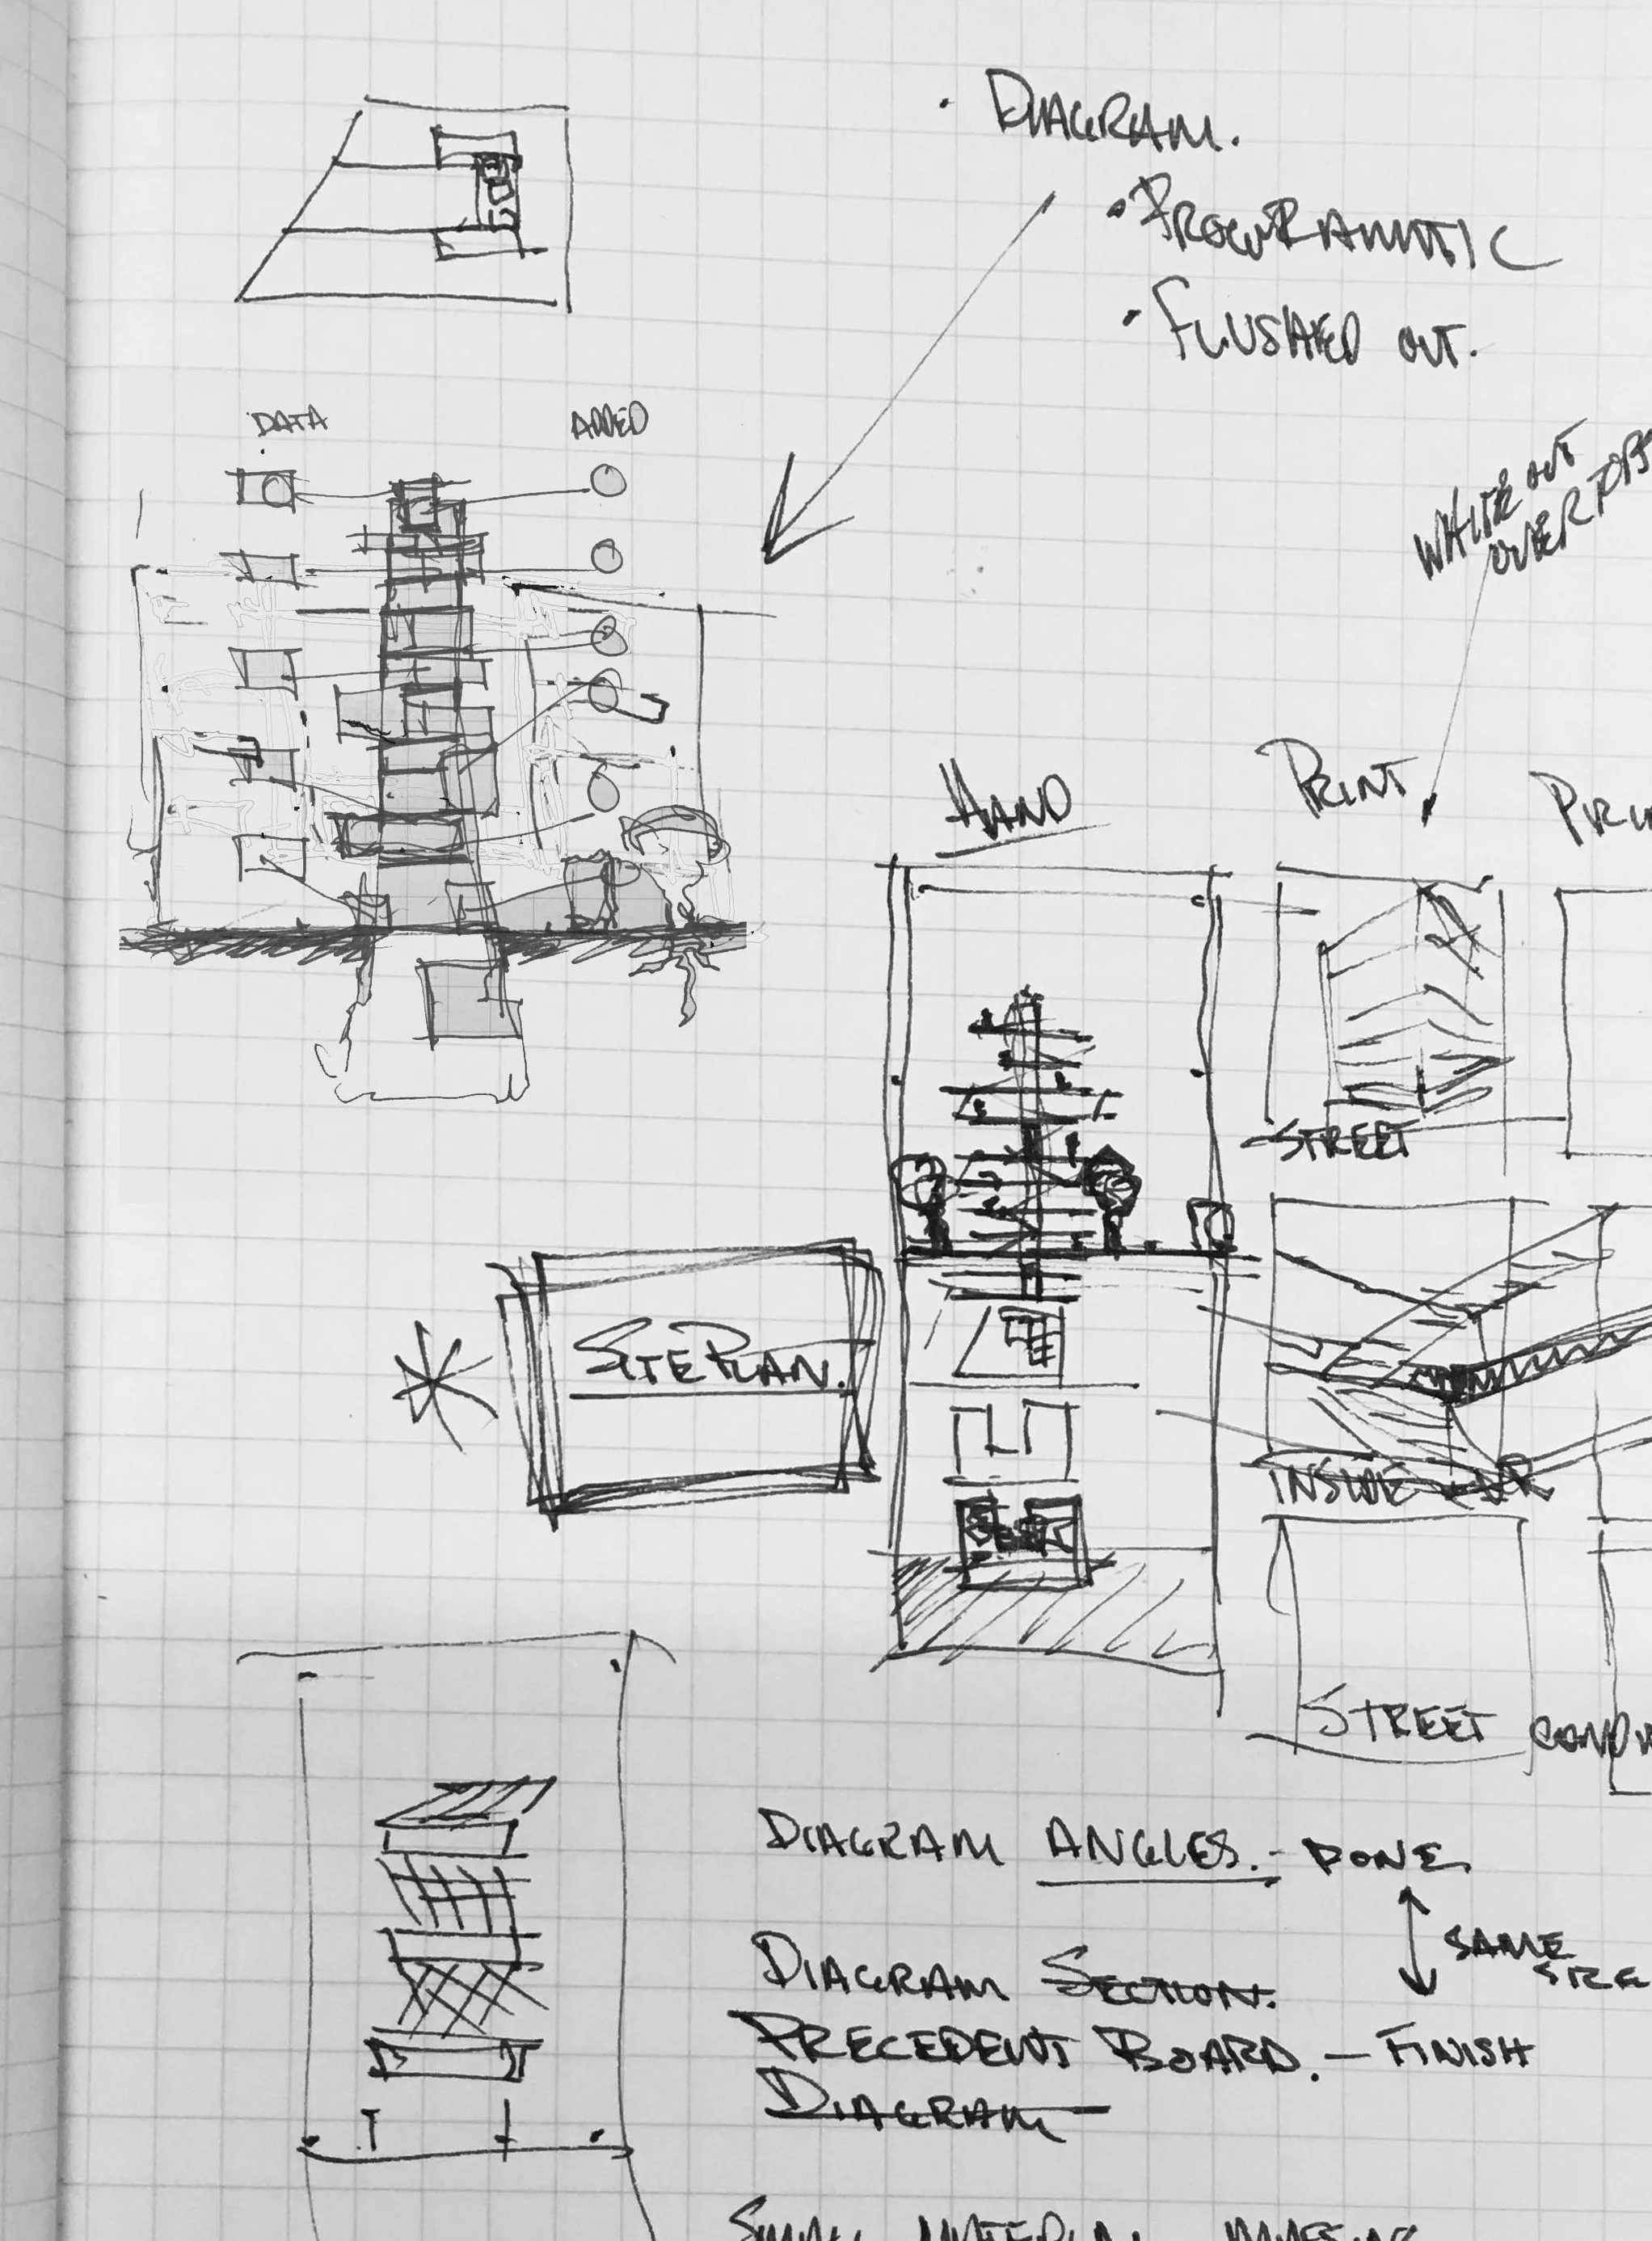 · DIAGRAM.
· PROGRAMMATIC
· FLUSHED OUT.
DATA
ADDED
WHITE OUT
OVER TOPS
HAND
PRINT
STREET
SITE PLAN.
INSIDE
STREET
DIAGRAM ANGLES. - DONE.
SAME
SIZE
DIAGRAM SECTION.
PRECEDENT BOARD. — FINISH
DIAGRAM
SMALL MATERIAL